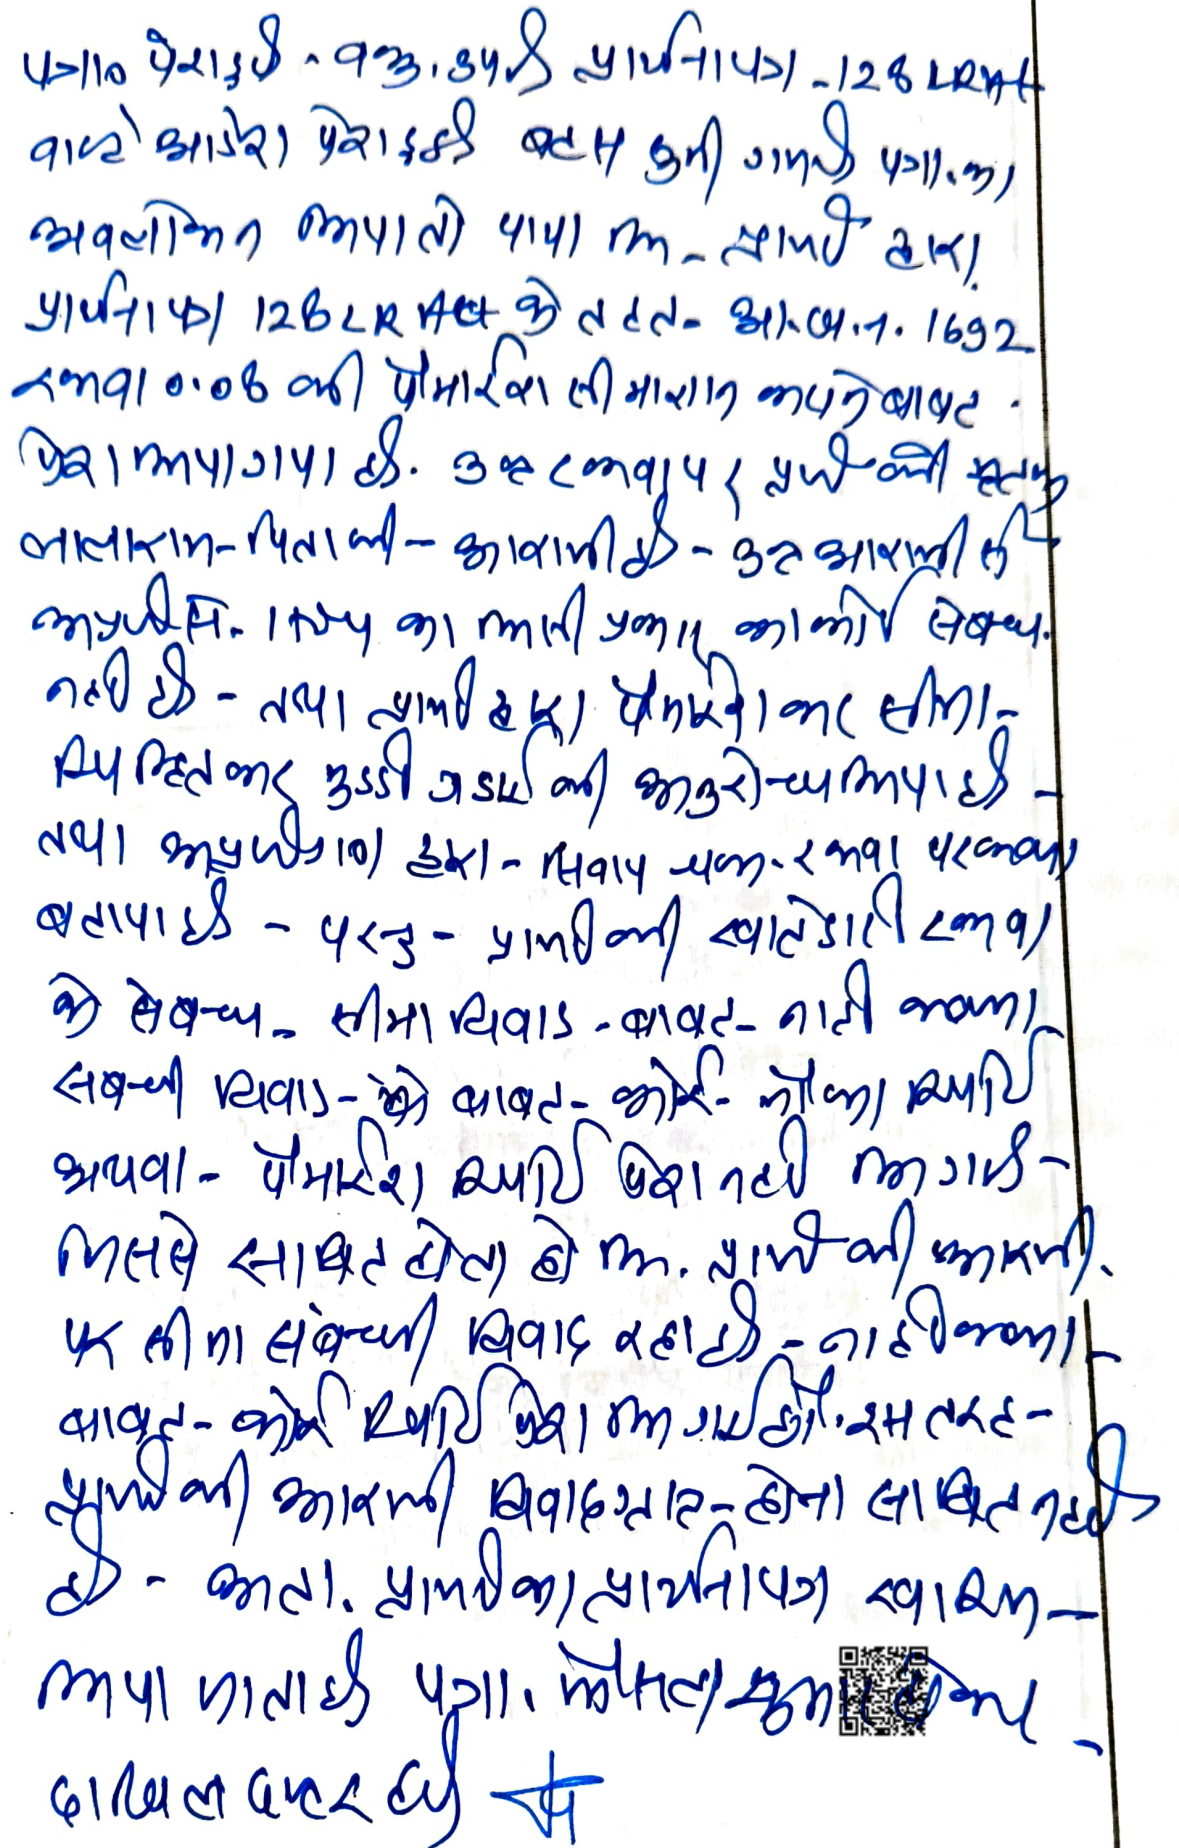 पत्रा० पेश हुई - वकी. उप. है प्रार्थनापत्र - 128 LR Act
वास्ते आदेश पेश हुई बहस सुनी गयी पत्रा. का
अवलोकन किया तो पाया कि - प्रार्थी द्वारा
प्रार्थनापत्र 128 LR Act के तहत - आ.ख.न. 1692
रकवा 0.08 की पैमाईश सीमाज्ञान कराने बाबत
पेश किया गया है. उक्त रकवा पर प्रार्थी की
पिता की - आराजी है - उक्त आराजी से
अप्रार्थी सं. 1 का किसी प्रकार का कोई संबन्ध
नहीं है - तथा प्रार्थी द्वारा पैमाईश कर सीमा -
चिन्हित कर गडाई की अनुरोध किया है -
तथा अप्रार्थीगण द्वारा - सिवाय चक - रकवा पर कब्जा
बताया है - परन्तु - प्रार्थी की खातेदारी रकवा
के संबन्ध - सीमा विवाद - बाबत - नाही कब्जा
संबन्धी विवाद - के बाबत - कोई - मौका रिपोर्ट
अथवा - पैमाईश रिपोर्ट पेश नहीं कि गई -
जिससे साबित होता हो कि. प्रार्थी की आराजी
पर सीमा संबन्धी विवाद रहा है - नाही कब्जा -
बाबत - कोई रिपोर्ट पेश कि गई हो. इस तरह -
प्रार्थी की आराजी विवादग्रस्त - होना साबित नहीं
है - अतः प्रार्थी का प्रार्थनापत्र खारिज -
किया जाता है पत्रा. फैसल शुमार होकर
दाखिल दफ्तर हो